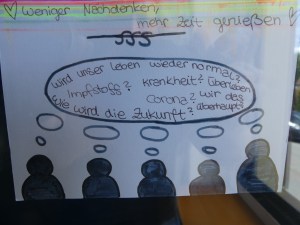 weniger Nachdenken,
mehr Zeit genießen
SSS
wird unser leben wieder normal?
Impfstoff? krankheit? Überleben
Corona? wir das
wie wird die Zukunft? überhaupt?